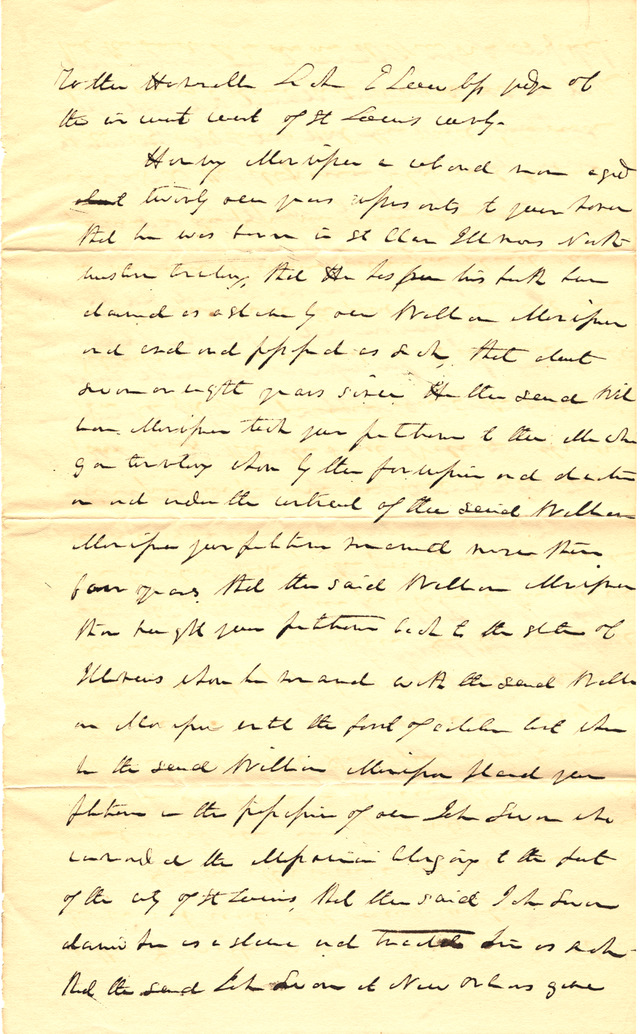 To the Honorable Luke E Lawless judge of
the circuit court of St Louis county.
Harry Morrison a colored man aged
about twenty one years represents to your honor
that he was born in St Clair Illinois North
western territory, that He has from his birth been
claimed as a slave by one William Morrison
and used and possessed as such, that about
seven or eight years since He the said Wil
liam Morrison took your petitioner to the Michi
gan territory where by the permission and direction
on and under the control of the said William
Morrison your petitioner remained more than
four years, that the said William Morrison
then brought your petitioner back to the state of
Illinois where he remained with the said Willi
am Morrison until the first of october last when
he the said William Morrison placed your
petitioner in the possession of one John Simon who
carried the to the port
of the city of St Louis, that the said John Simon
claims him as a slave and treated him as such
that the said John Simon at New Orleans gave